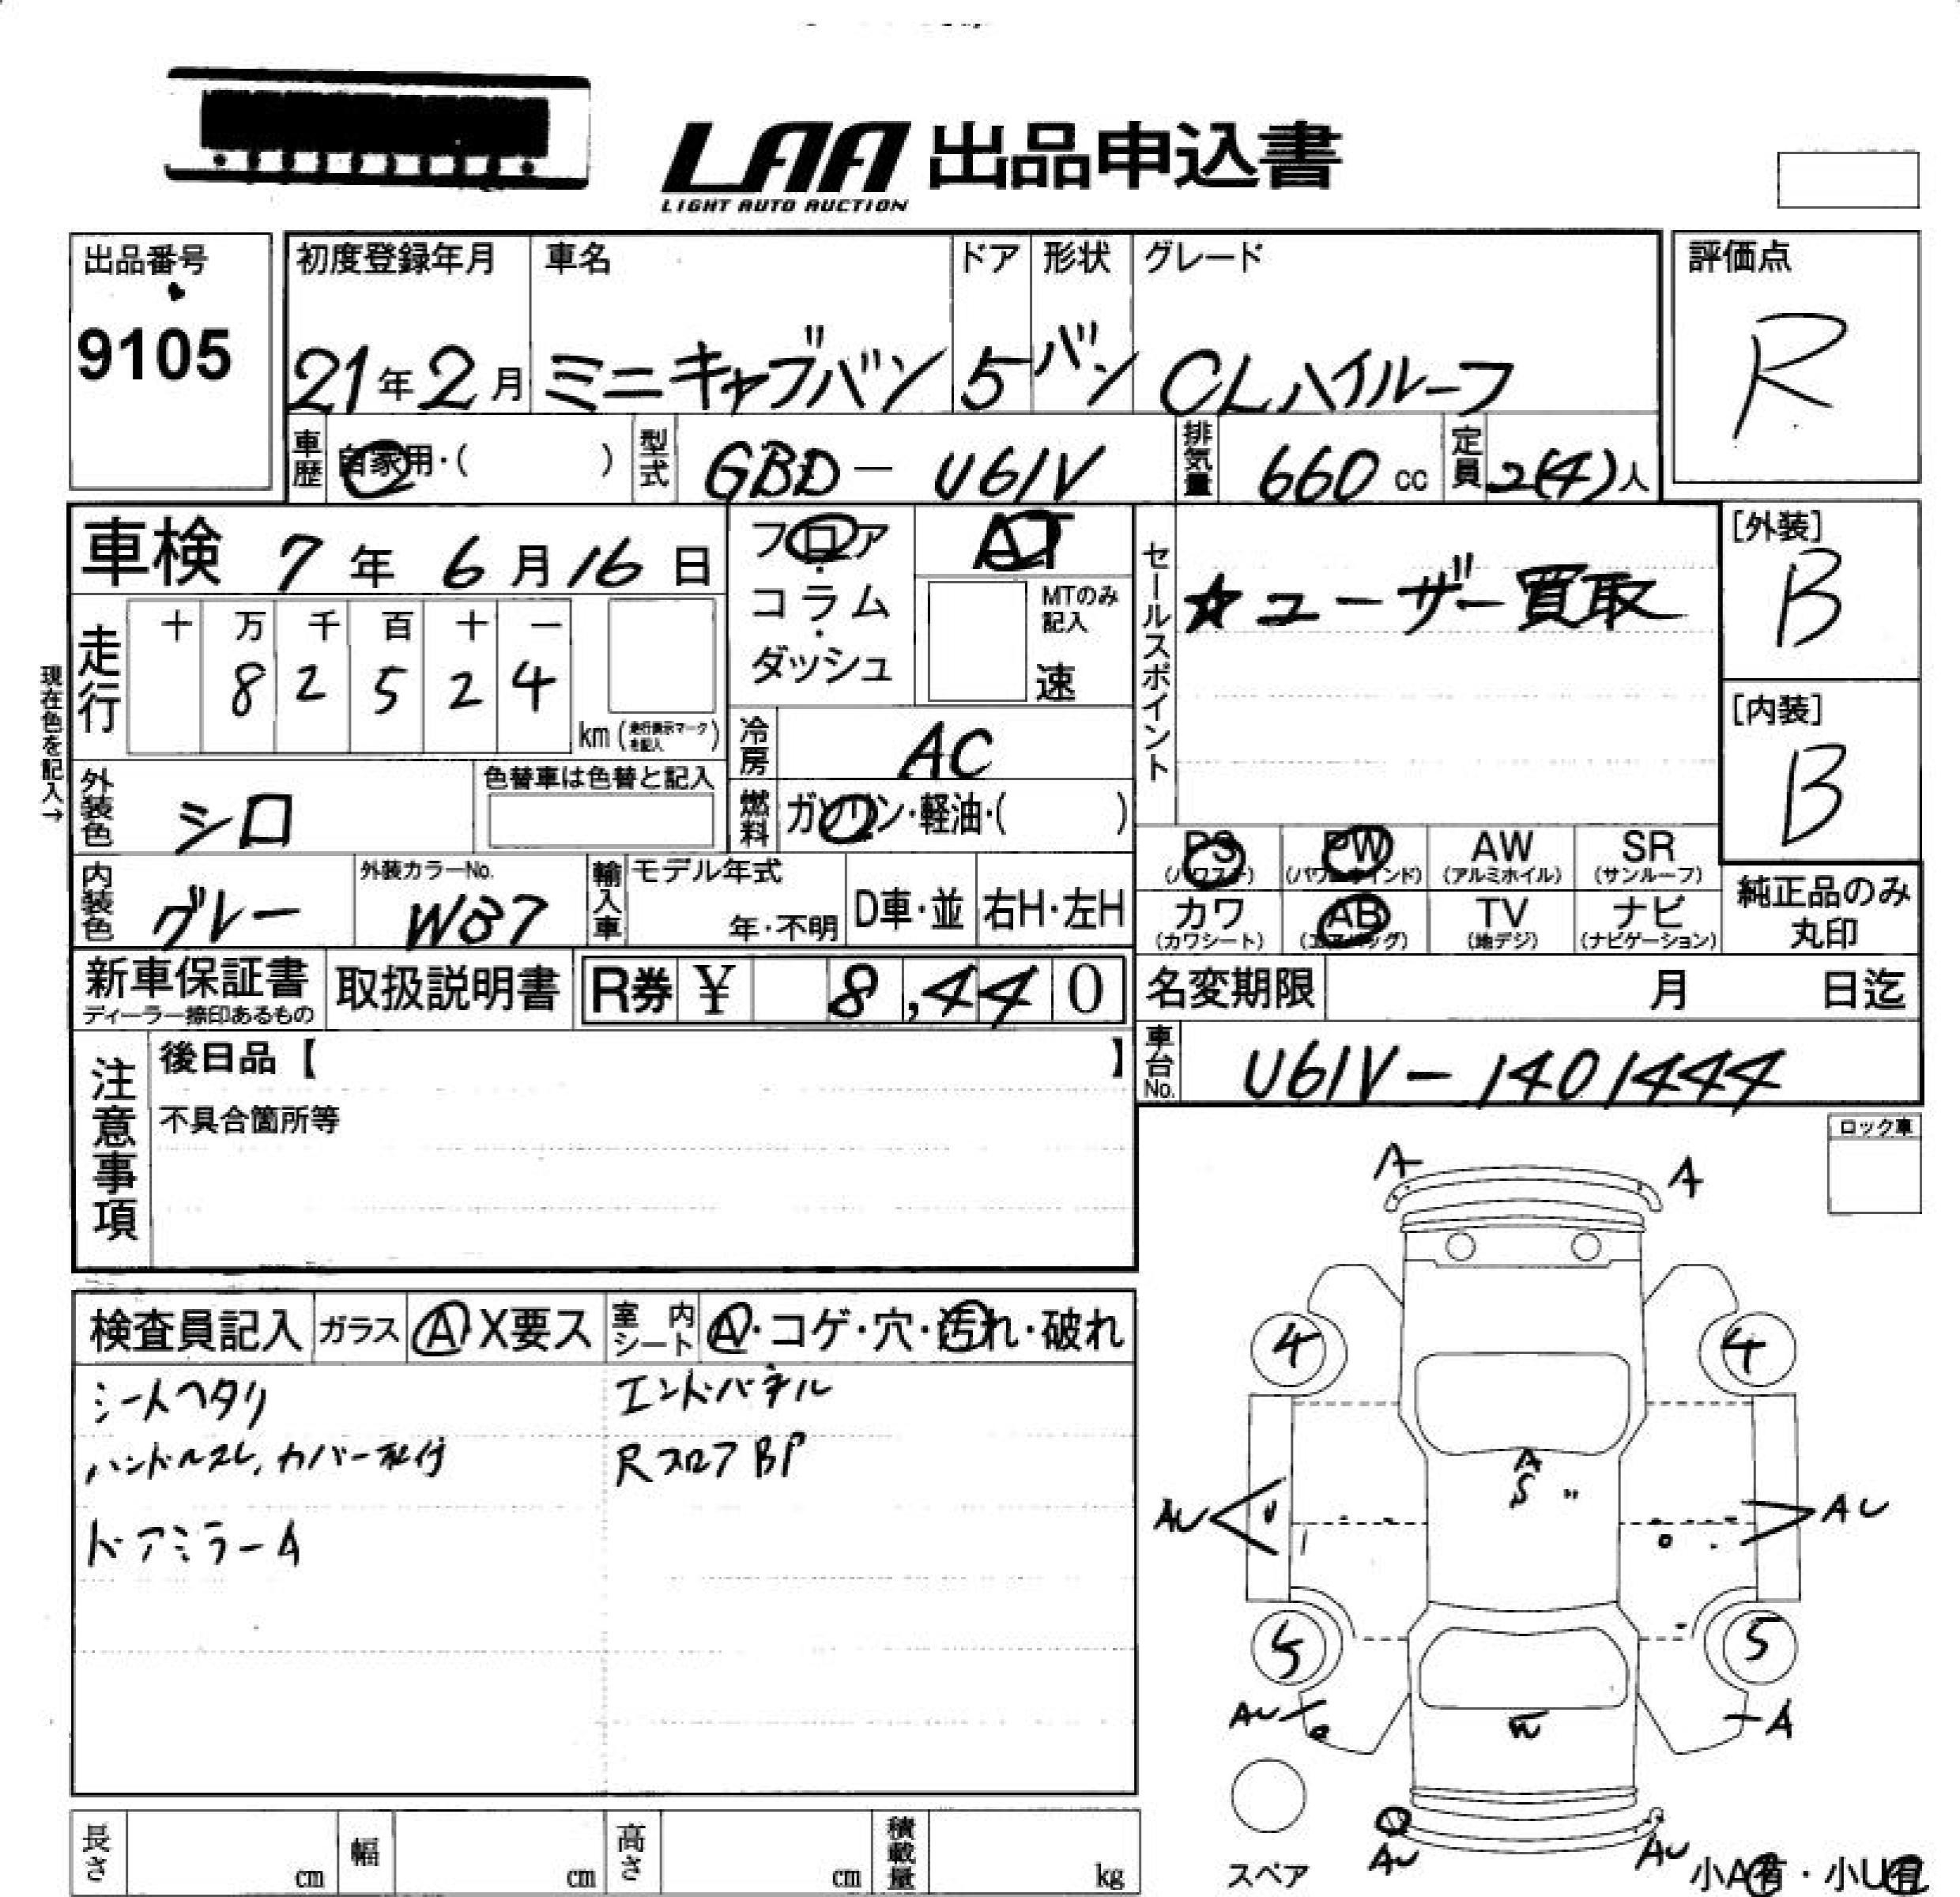 LAA 出品申込書
LIGHT AUTO AUCTION
出品番号
9105
初度登録年月 車名 ドア 形状 グレード
21年2月 ミニキャブバン 5 バン CLハイルーフ
評価点
R
車歴 自家用・( ) 型式 GBD-U61V 排気量 660 cc 定員 2(4)人
車検 7年6月16日
フロア・コラム・ダッシュ
AT
MTのみ記入
速
セールスポイント
☆ユーザー買取
[外装]
B
[内装]
B
現在色を記入→
走行 十 万 千 百 十 一
8 2 5 2 4
km (走行表示マークを記入)
冷房 AC
外装色 シロ 色替車は色替と記入
燃料 ガソリン・軽油・( )
PS (パワステ) PW (パワーウインド) AW (アルミホイル) SR (サンルーフ)
カワ (カワシート) AB (エアバッグ) TV (地デジ) ナビ (ナビゲーション)
純正品のみ
丸印
内装色 グレー 外装カラーNo. W37 輸入車 モデル年式 年・不明 D車・並 右H・左H
新車保証書 ディーラー捺印あるもの 取扱説明書 R券 ¥ 8,440
名変期限 月 日迄
車台No. U61V-1401444
注意事項
後日品【 】
不具合箇所等
ロック車
検査員記入 ガラス A X要ス 室内シート A・コゲ・穴・汚れ・破れ
シートヘタリ エンドパネル
ハンドルスレ、カバー R フロア BP
ドアミラーA
A A
4 4
A
S 〃
AU AU
5 5
AU A
AU AU
スペア
小A有・小U有
長さ cm 幅 cm 高さ cm 積載量 kg